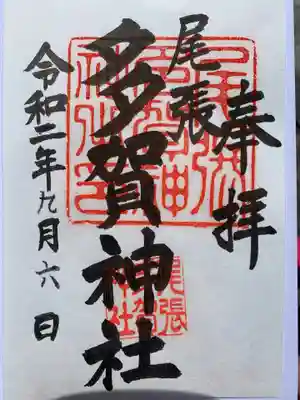 奉拝
尾張
多賀神社
令和二年九月六日
尾張多賀神社印
尾張多賀社